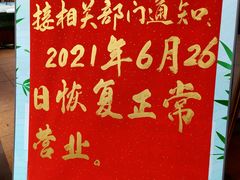 接相关部门通知、
2021年6月26
日恢复正常
营业。